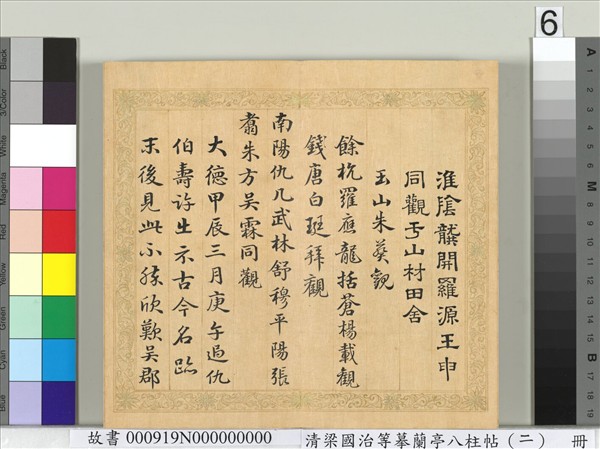 淮陰龔開羅源王申
同觀于山村田舍
玉山朱葵觀
餘杭羅應龍括蒼楊載觀
錢唐白珽拜觀
南陽仇几武林舒穆平陽張
翥朱方吳霖同觀
大德甲辰三月庚午過仇
伯壽許出示古今名跡
末後見此不勝欣歎吳郡
6
Black
3/Color
White
Magenta
Red
Yellow
Green
Cyan
Blue
A
1
2
3
4
5
6
M
8
9
10
11
12
13
14
15
B
17
18
19
故書 000919N000000000
清梁國治等摹蘭亭八柱帖(二) 冊